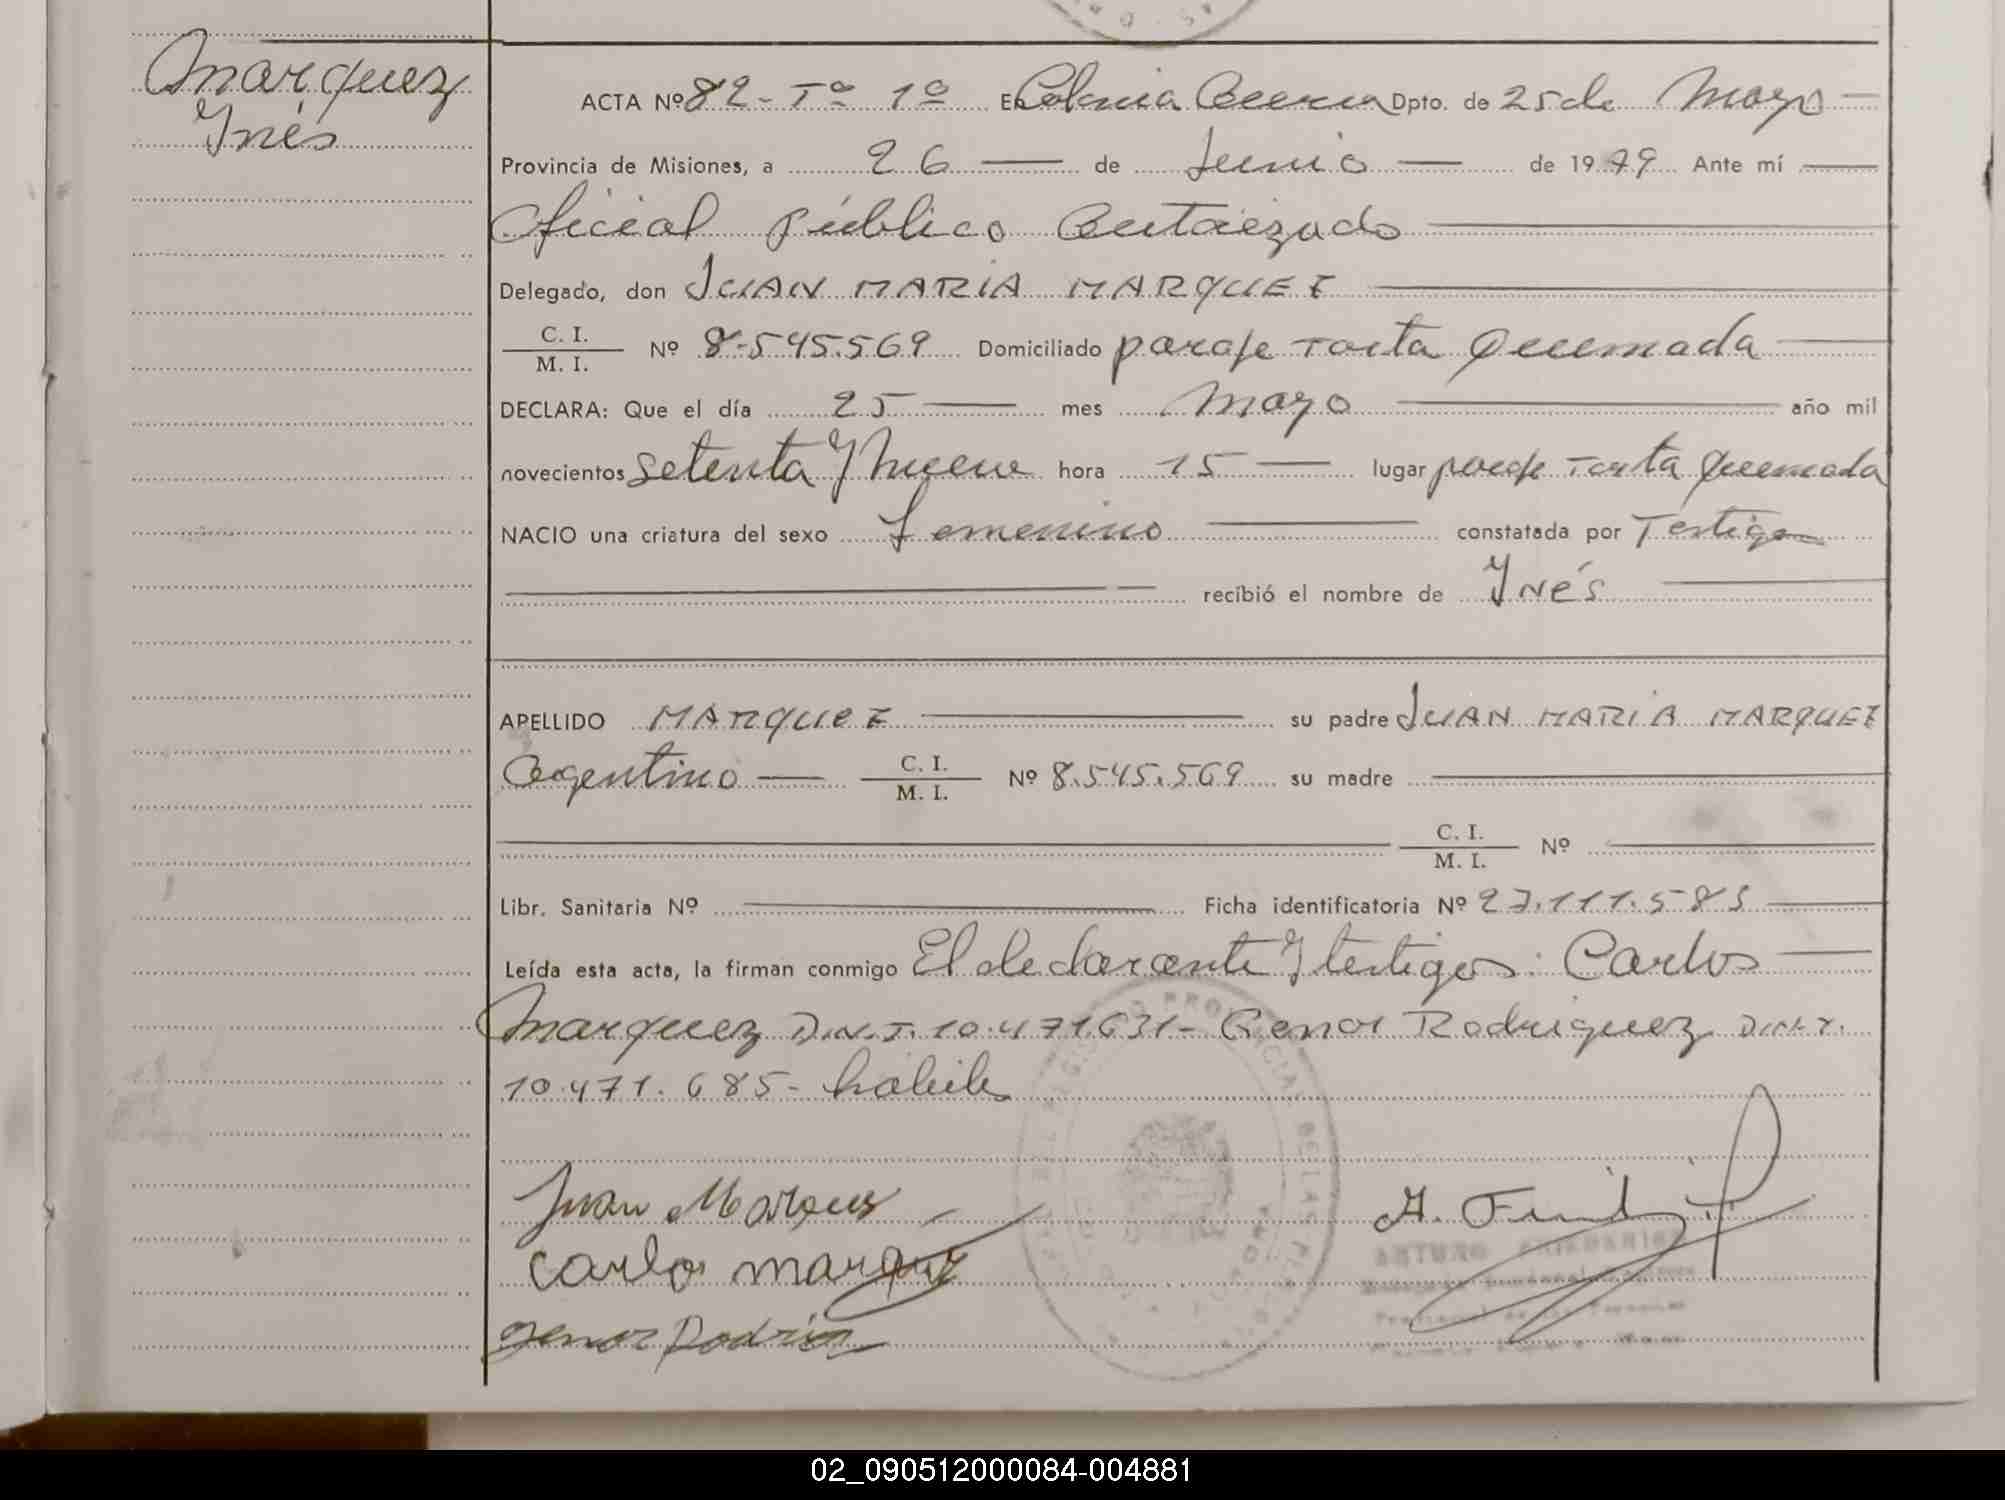 Marquez
Ynés
ACTA Nº 82 - Tº 1º En Colonia Aurora Dpto. de 25 de Mayo
Provincia de Misiones, a 26 de Junio de 1979 Ante mí
Oficial Público Autorizado
Delegado, don JUAN MARIA MARQUEZ
C. I.
M. I. Nº 8.545.569 Domiciliado paraje Torta Quemada
DECLARA: Que el día 25 mes Mayo año mil
novecientos setenta y nueve hora 15 lugar paraje Torta Quemada
NACIO una criatura del sexo femenino constatada por Testigos
recibió el nombre de Ynés
APELLIDO MARQUEZ su padre JUAN MARIA MARQUEZ
Argentino C. I.
M. I. Nº 8.545.569 su madre
C. I.
M. I. Nº
Libr. Sanitaria Nº Ficha identificatoria Nº 27.111.583
Leída esta acta, la firman conmigo El declarante y testigos: Carlos
Marquez D.N.I. 10.471.631 - Genor Rodriguez D.N.I.
10.471.685 - hábiles
Juan Marques
Carlos marquez
genor Rodrig
REGISTRO PROVINCIAL DE LAS PERSONAS
A.
ARTURO
02_090512000084-004881